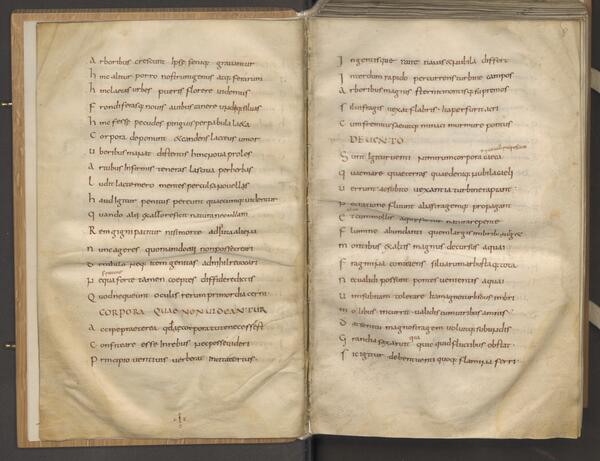 Arboribus crescunt ipse fetuque gravantur
hinc alitur porro nostrum genus atq; ferarum
hinc laetas urbes pueris florere videmus
Frondiferasq; novis avibus canere undiq; silvas
hinc fesse pecudes pingui per pabula laeta
Corpora deponunt et candens lacteus umor
uberibus manat distentis hinc nova proles
Artubus infirmis teneras lasciva per herbas
Ludit lacte mero mentes perculsa novellas
haud igitur penitus pereunt quaecumq; videntur
Quando alit ex alio reficit natura nec ullam
Rem gigni patitur nisi morte adiuta aliena
nunc age res quoniam docui non posse creari
De nihilo neq; item genitas ad nihil revocari
Nequa forte tamen coeptes diffidere dictis
Quod nequeunt oculis rerum primordia cerni
CORPORA QUAE NON VIDEANTUR
Accipe praeterea corpora tute necesse est
Confiteare esse in rebus nec posse videri
Principio venti vis verberat
Ingentisque ruit navis et nubila differt
Interdum rapido percurrens turbine campos
Arboribus magnis sternit montisq; supremos
Silvifragis vexat flabris ita perfurit acri
Cum fremitu saevitq; minaci murmure pontus
DE VENTO
Sunt igitur venti nimirum corpora caeca
Quae mare quae terras quae deniq; nubila caeli
Verrunt ac subito vexantia turbine raptant
Nec ratione fluunt alia stragemq; propagant
Et cum mollis aque fertur natura repente
Flumine abundanti quam largis imbribus auget
Montibus ex altis magnus decursus aquai
Fragmina coniciens silvarum arbustaq; tota
Nec validi possunt pontes venientis aquai
Vim subitam tolerare ita magno turbidus imbri
Molibus incurrit validis cum viribus amnis
Dat sonitu magno stragem volvitq; sub undis
Grandia saxa ruit qua quidquid fluctibus obstat
Sic igitur debent venti quoq; flamina ferri